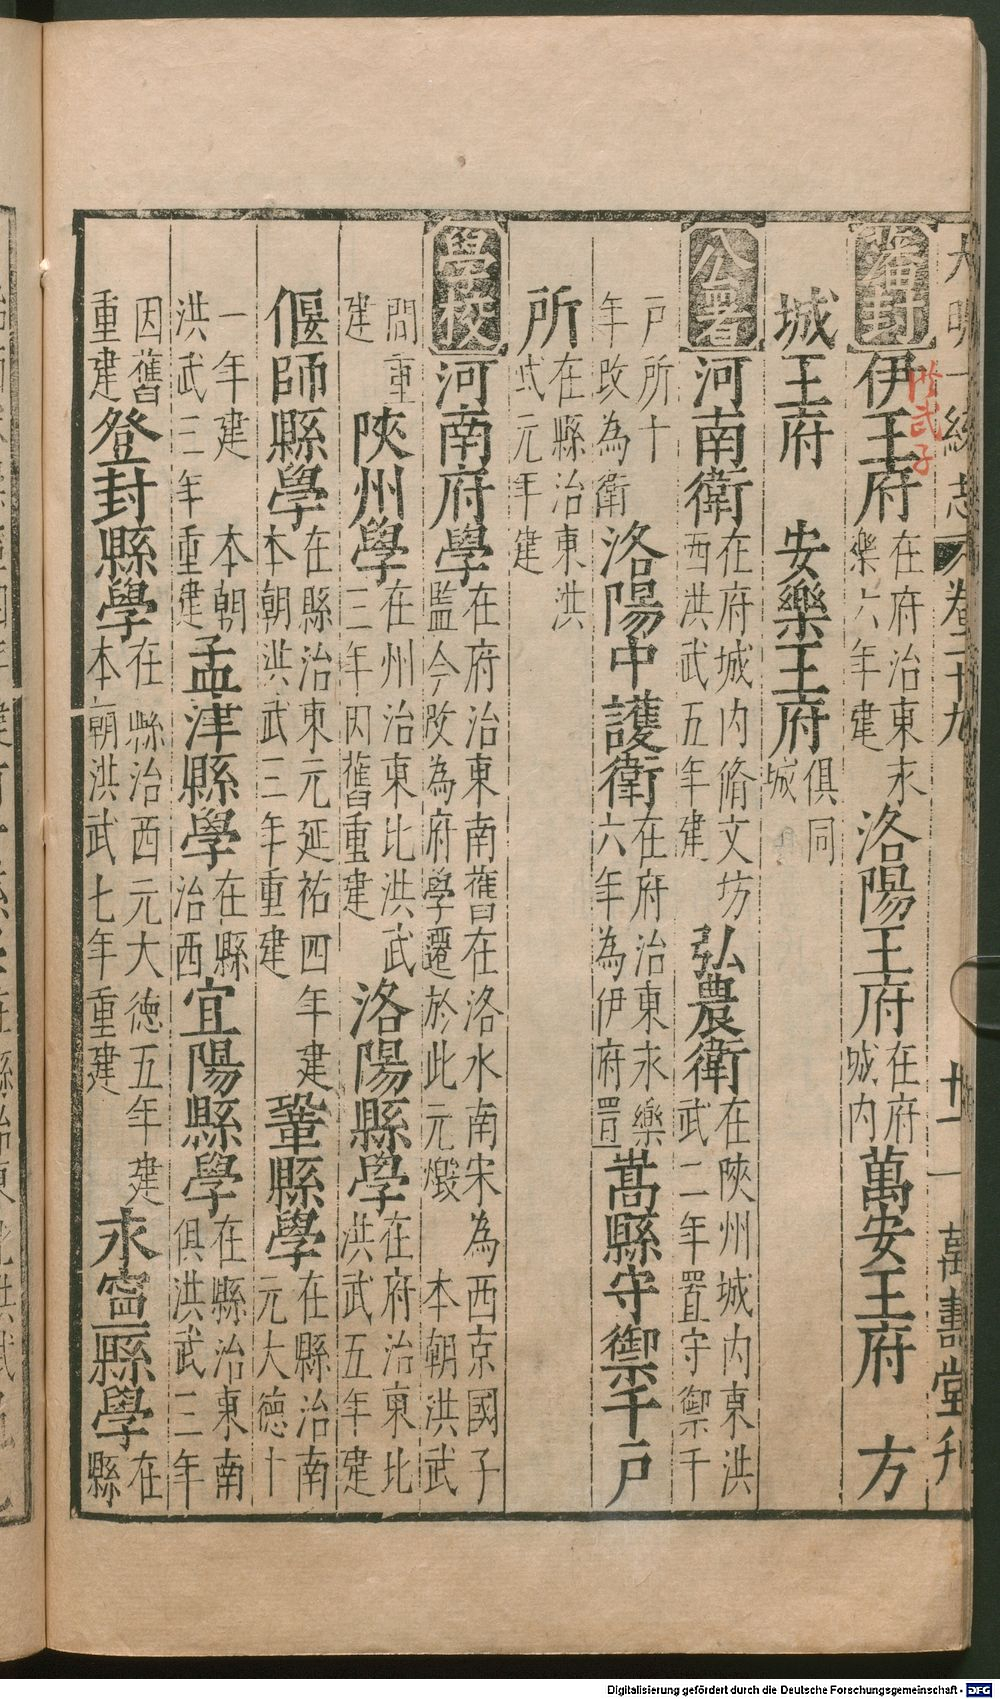 大明一統志 卷二十九 廿一 萬壽堂刊
藩封 伊王府 在府治東永樂六年建 洛陽王府 在府城内 萬安王府 方
城王府 安樂王府 俱同城
公署 河南衛 在府城内脩文坊西洪武五年建 弘農衛 在陝州城内東洪武二年置守禦千
戶所十年改為衛 洛陽中護衛 在府治東永樂六年為伊府置 嵩縣守禦千戶
所 在縣治東洪武元年建
學校 河南府學 在府治東南舊在洛水南宋為西京國子監今改為府學遷於此元燬 本朝洪武
間重建 陝州學 在州治東比洪武三年因舊重建 洛陽縣學 在府治東比洪武五年建
偃師縣學 在縣治東元延祐四年建本朝洪武三年重建 鞏縣學 在縣治南元大德十
一年建 本朝洪武三年重建 孟津縣學 在縣治西 宜陽縣學 在縣治東南俱洪武三年
因舊重建 登封縣學 在縣治西元大德五年建本朝洪武七年重建 永寧縣學 在縣
洪武子
Digitalisierung gefördert durch die Deutsche Forschungsgemeinschaft - DFG